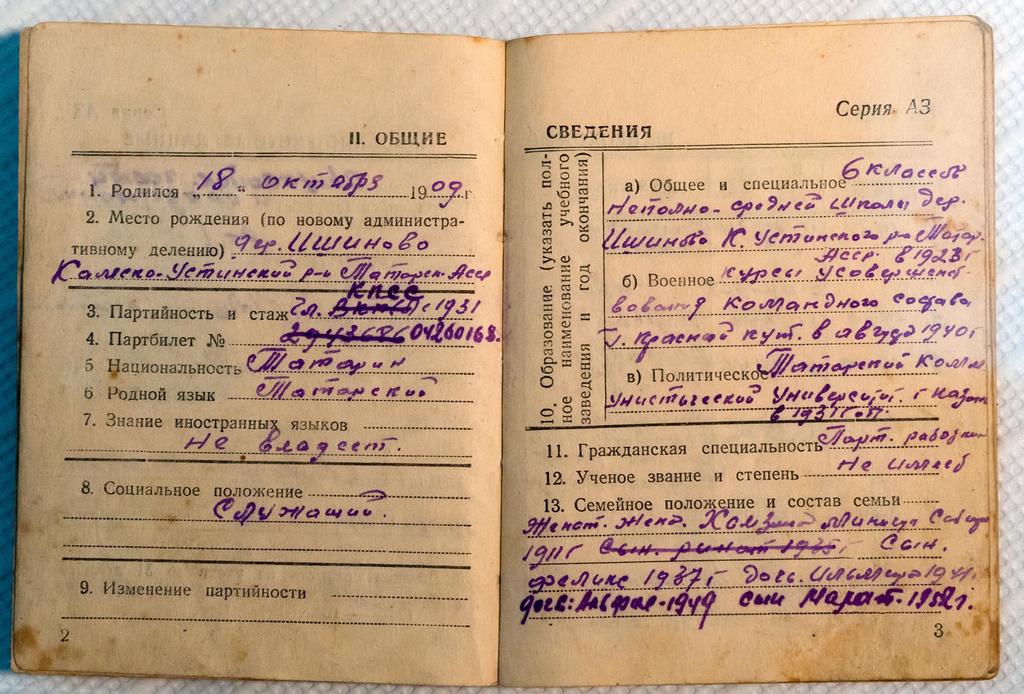 II. ОБЩИЕ
1. Родился „18“ октября 1909г.
2. Место рождения (по новому администра-
тивному делению) дер. Ишиново
Камско-Устинский р-н Татарск. Асср
КПСС
3. Партийность и стаж чл. ВКП(б) с 1931
4. Партбилет № 2943686 04260168.
5 Национальность Татарин
6 Родной язык Татарский
7. Знание иностранных языков
не владеет.
8. Социальное положение
Служащий.
9. Изменение партийности
2
Серия АЗ
СВЕДЕНИЯ
10. Образование (указать пол-
ное наименование учебного
заведения и год окончания)
а) Общее и специальное 6 классов
Неполно-средней школы дер.
Ишиново К. Устинского р-на Татар.
Асср в 1923г
б) Военное курсы усовершенст-
вования командного состава
г. Красный кут. в августе 1940г
в) Политическое Татарский Комм
унистический Университет. г. Казань
в 1931г.
11. Гражданская специальность Парт. работник
12. Ученое звание и степень не имеет
13. Семейное положение и состав семьи
Женат. жена.
1911г Сын. ринат 1935г Сын.
феликс 1937г дочь. 1941г.
дочь: 1949 сын Марат. 1952г.
3